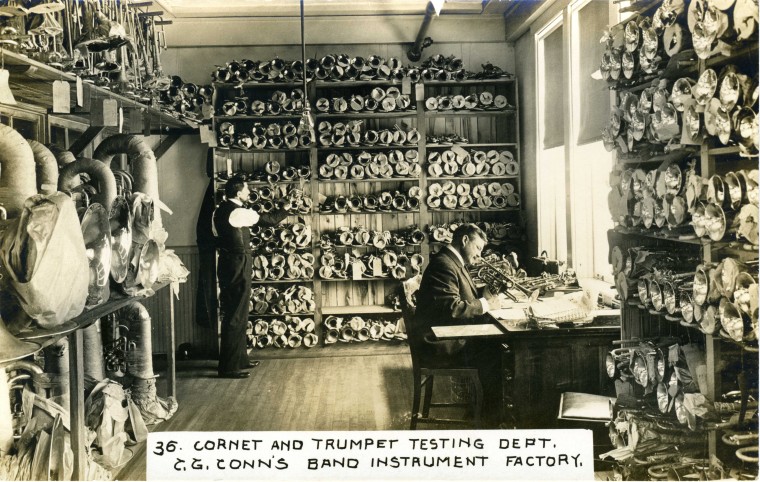 36. CORNET AND TRUMPET TESTING DEPT.
C.G. CONN'S BAND INSTRUMENT FACTORY.